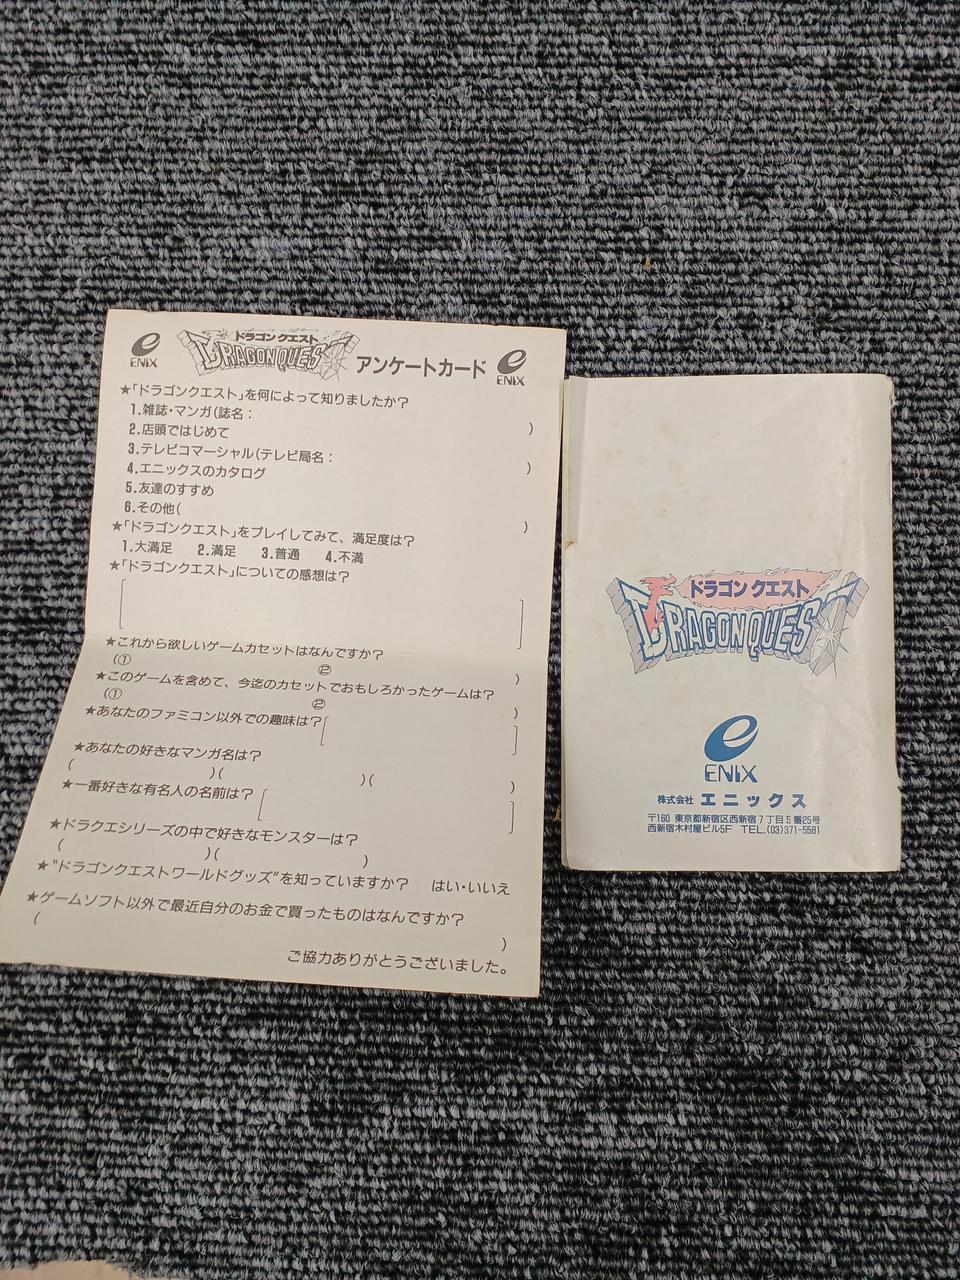 ENIX
ドラゴン クエスト
DRAGON QUEST
アンケートカード
ENIX
★「ドラゴンクエスト」を何によって知りましたか?
1.雑誌・マンガ(誌名: )
2.店頭ではじめて
3.テレビコマーシャル(テレビ局名: )
4.エニックスのカタログ
5.友達のすすめ
6.その他( )
★「ドラゴンクエスト」をプレイしてみて、満足度は?
1.大満足 2.満足 3.普通 4.不満
★「ドラゴンクエスト」についての感想は?
[ ]
★これから欲しいゲームカセットはなんですか?
(① ② )
★このゲームを含めて、今迄のカセットでおもしろかったゲームは?
(① ② )
★あなたのファミコン以外での趣味は?[ ]
★あなたの好きなマンガ名は?
( )( )( )
★一番好きな有名人の名前は?[ ]
★ドラクエシリーズの中で好きなモンスターは?
( )( )
★"ドラゴンクエストワールドグッズ"を知っていますか? はい・いいえ
★ゲームソフト以外で最近自分のお金で買ったものはなんですか?
( )
ご協力ありがとうございました。
ドラゴン クエスト
DRAGON QUEST
ENIX
株式会社 エニックス
〒160 東京都新宿区西新宿7丁目5番25号
西新宿木村屋ビル5F TEL.(03)371-5581